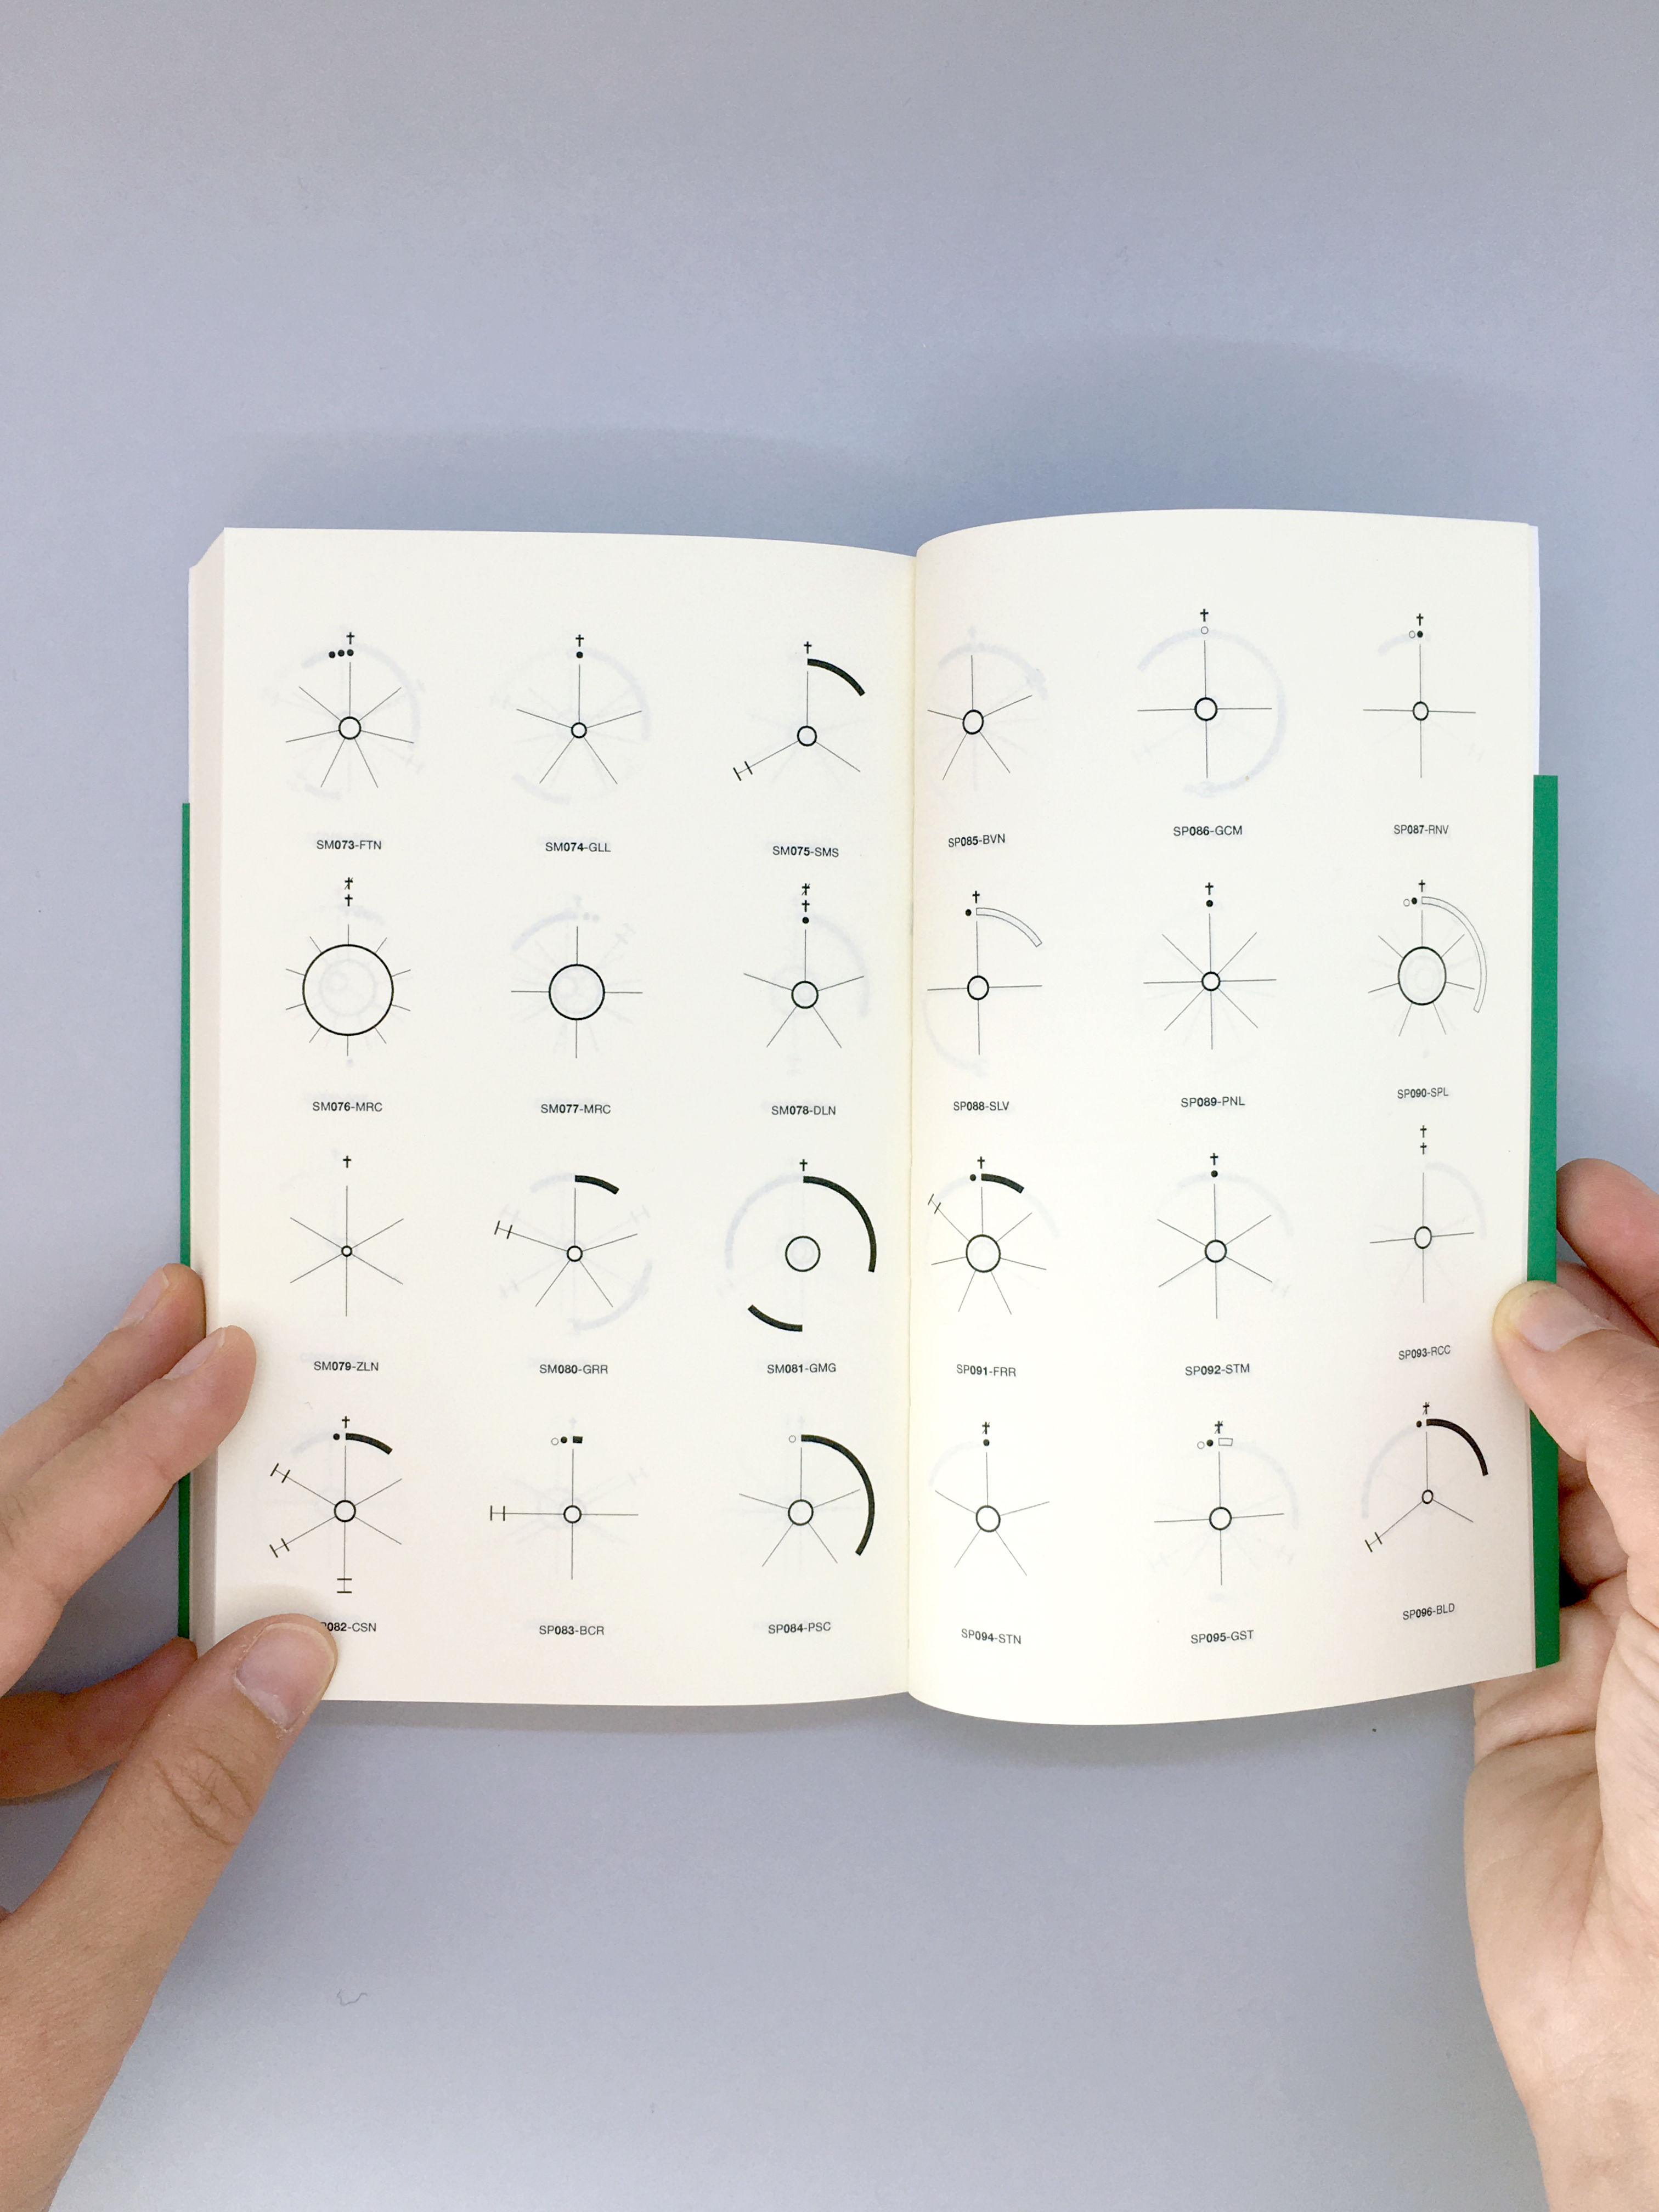 SM073-FTN SM074-GLL SM075-SMS
SM076-MRC SM077-MRC SM078-DLN
SM079-ZLN SM080-GRR SM081-GMG
P082-CSN SP083-BCR SP084-PSC
SP085-BVN SP086-GCM SP087-RNV
SP088-SLV SP089-PNL SP090-SPL
SP091-FRR SP092-STM SP093-RCC
SP094-STN SP095-GST SP096-BLD